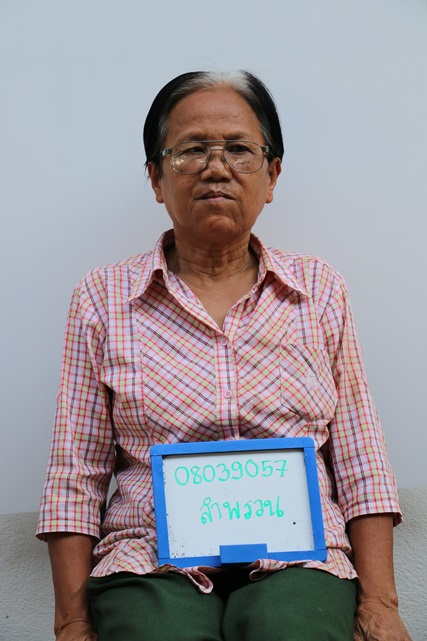 08039057
ลำพรวน